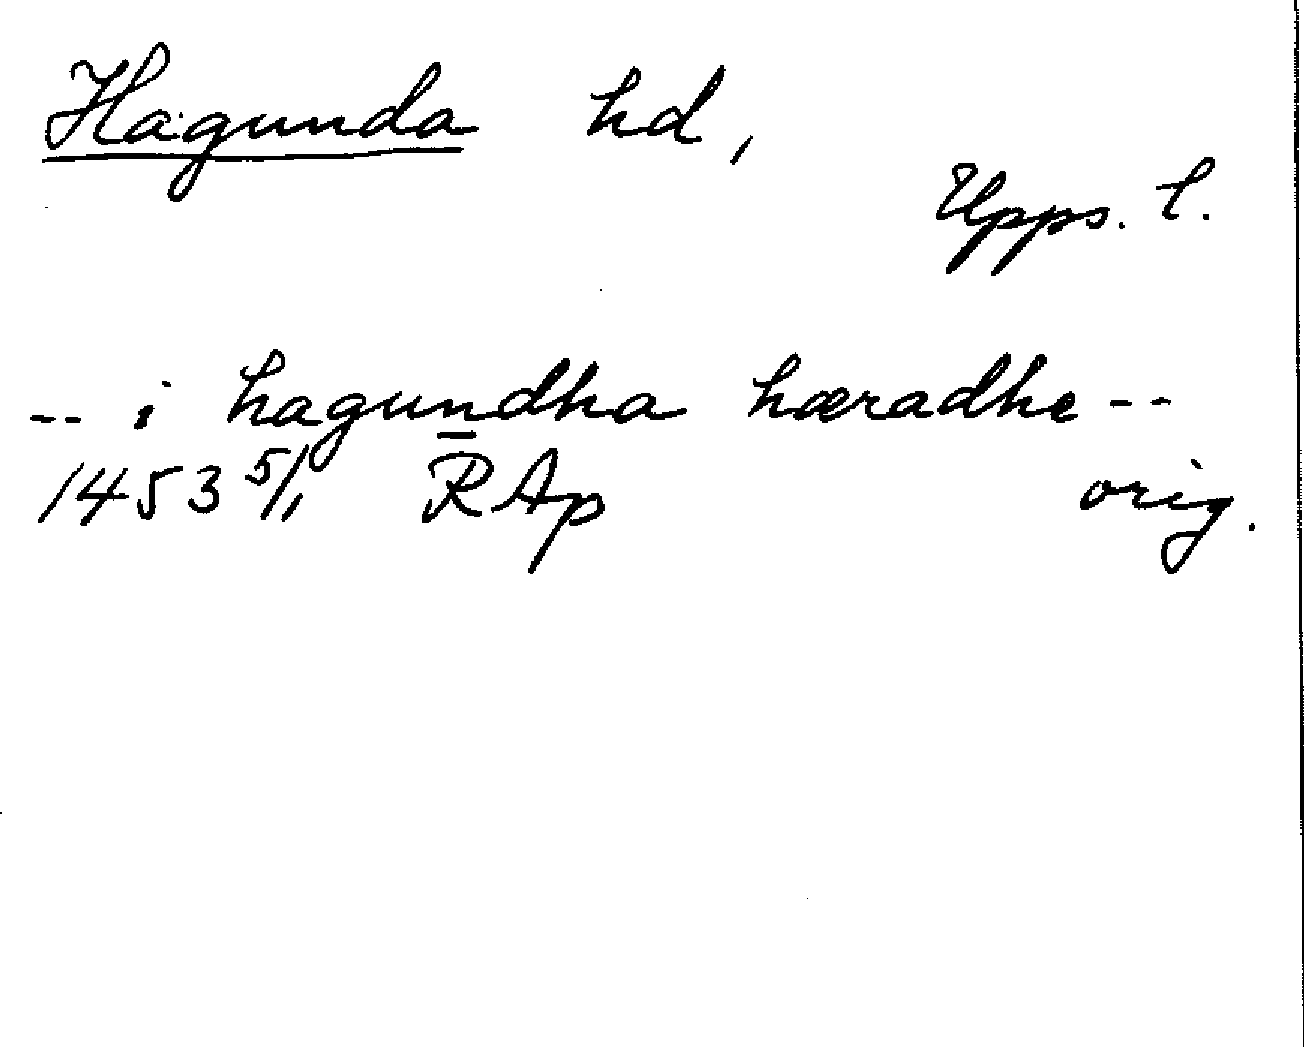 Hagunda hd,
Upps. l.
-- i hagundha hæradhe --
1453 5/1 RAp orig.